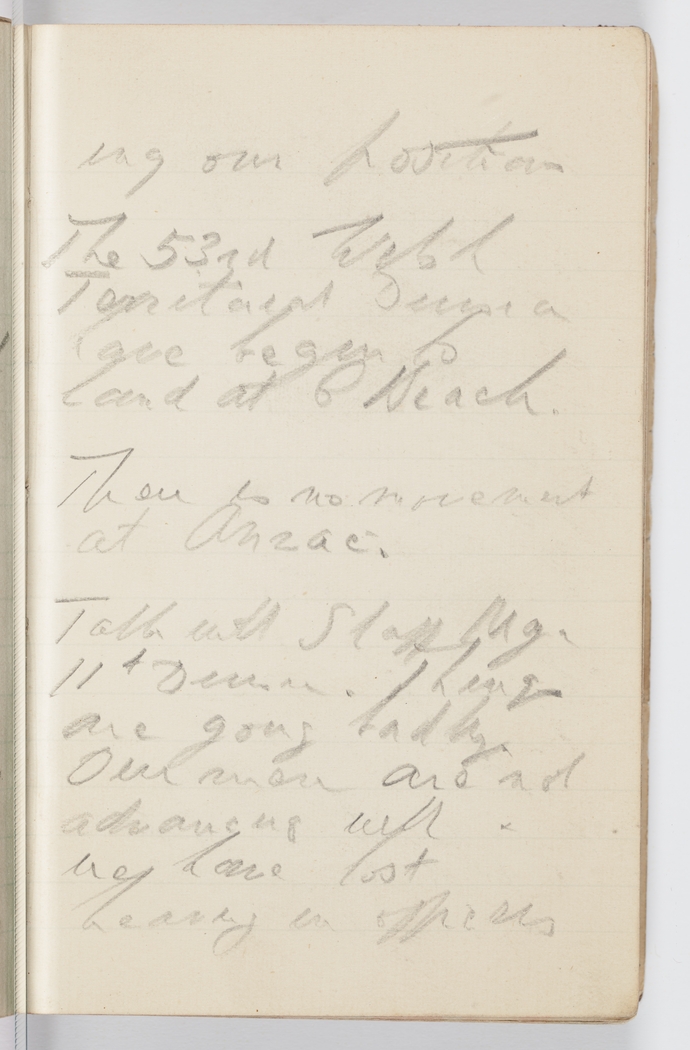 ing our position
The 53rd Welsh
Territorial Division
have begun to
land at C Beach.
There is no movement
at Anzac.
Talk with Staff Mg.
11th Division. Things
are going badly.
Our men are not
advancing well &
we have lost
heavily in officers